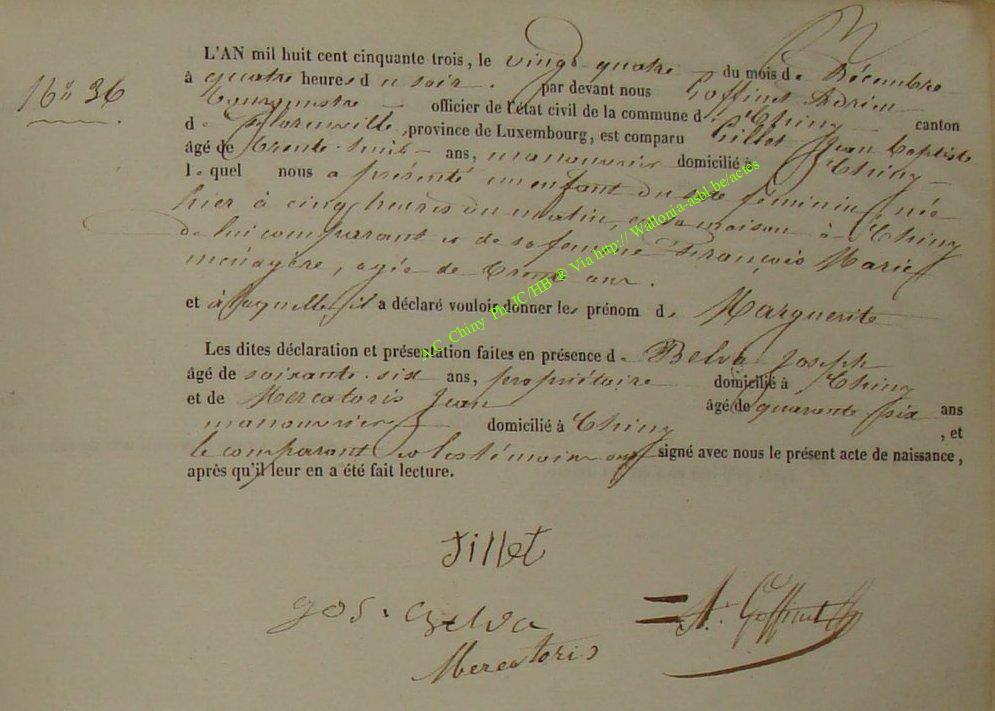 N° 36
L'AN mil huit cent cinquante trois, le vingt quatre du mois de Décembre
à quatre heures du soir. par devant nous Goffinet Adrien
Bourgmestre officier de l'état civil de la commune d Chiny canton
de Florenville, province de Luxembourg, est comparu Gillet Jean Baptiste
âgé de trente-huit ans, manouvrier domicilié à Chiny
lequel nous a présenté un enfant du sexe féminin née
hier à cinq heures du matin, en sa maison à Chiny
de lui comparant et de sa femme François Marie
ménagère, agée de trente ans.
et à laquelle il a déclaré vouloir donner les prénom de Marguerite
Les dites déclaration et présentation faites en présence de Belva Joseph
âgé de soixante-six ans, propriétaire domicilié à Chiny
et de Mercatoris Jean âgé de quarante six ans
manouvrier domicilié à Chiny , et
le comparant et les témoins ont signé avec nous le présent acte de naissance,
après qu'il leur en a été fait lecture.
Jillet
Jos. Belva
A. Goffinet
Mercatoris
A.C. Chiny Ph JC/HB ® Via http:// Wallonia-asbl.be/actes